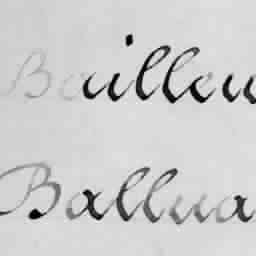 Bailleu
Ballua